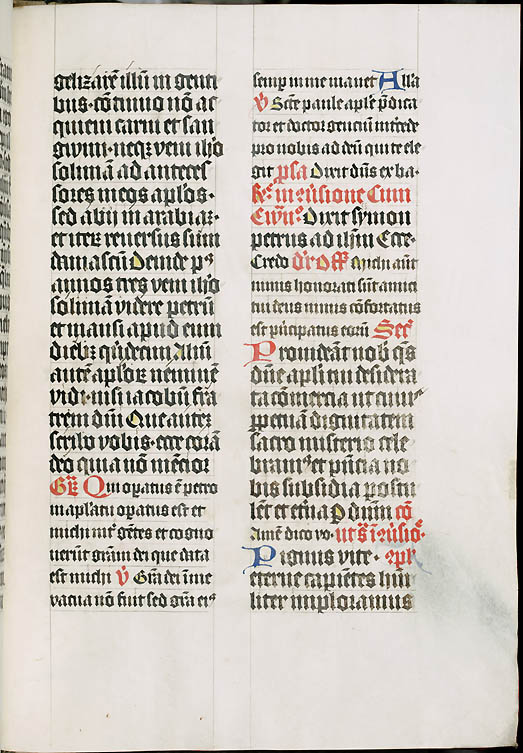 gelizarē illū in genti
bus · cōtinuo nō ac
quieui carni et san
guini · neqꝫ veni iho
solimā ad anteces
sores meos ap̄los ·
sed abij in arabiā ·
et iteꝝ reuersus sum
damascū Deinde pꝰ
annos tres veni iho
solimā videre petrū
et mansi apud eum
diebꝫ qͥndecim Aliū
autē aploꝝ neminē
vidi · nisi iacobū fra
trem dn̄i Que autē
scribo vobis · ecce corā
deo quia nō mentior
Gꝛ̄ Qui opatus ē petro
in aplatu opatus est et
michi int̄ gētes et cogno
uerūt grām dei que data
est michi ℣ Gr̄a dei in me
vacua nō fuit sed gr̄a eiꝰ
semp in me manet Alla
℣ Sc̄te paule aplē p̄dica
tor et doctor gentiū intede
pro nobis ad deū qui te ele
git psā Dixit dn̄s ex ba
in ꝯuꝰsione Cum
Dixit symon
petrus ad ihm̄ Ecce ·
Credo Michi aūt
nimis honorati sūt amici
tui deus nimis cōfortatus
est pͥncipatus eorū Secͬ
Prouideāt nob̄ qs̄
dn̄e apl̄i tui desidera
ta cōmercia ut cum
ppetuā dignitatem
sacro misterio cele
bramꝰ et pn̄cia no
bis subsidia postu
lēt et etn̄a P dn̄m cō
Amē dico vo · ut s̄ ī ꝯuꝰsiō ·
Pignus vite · ꝯpl̄
eterne capiētes hūi
liter imploramus